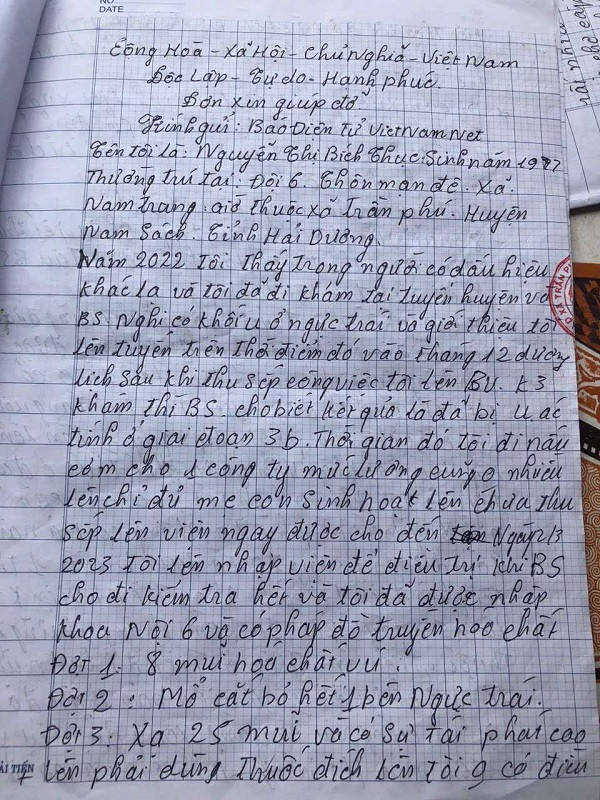 NO
DATE
Cộng Hoà - Xã Hội - Chủ Nghĩa - Việt Nam
Độc Lập - Tự do - Hạnh phúc.
Đơn xin giúp đỡ
Kính gửi: Báo Điện Tử VietNamNet
Tên tôi là: Nguyễn Thị Bích Thục. Sinh năm 1977
Thường trú tại: Đội 6. Thôn mạn đê. Xã.
Nam trung. giờ thuộc xã Trần phú. Huyện
Nam Sách. Tỉnh Hải Dương.
Năm 2022 Tôi Thấy trong người có dấu hiệu
khác lạ và tôi đã đi khám tại tuyến huyện và
BS. Nghi có khối u ở ngực trái và giới thiệu tôi
lên tuyến trên thời điểm đó vào tháng 12 dương
lịch sau khi thu sếp công việc tôi lên BV. K3
khám thì BS. cho biết kết quả là đã bị u ác
tính ở giai đoạn 3b. Thời gian đó tôi đi nấu
cơm cho 1 công ty mức lương cũng o nhiều
lên chỉ đủ mẹ con sinh hoạt lên chưa thu
sếp lên viện ngay được cho đến Ngày 2/3
2023 Tôi lên nhập viện để điều trị khi BS
cho đi kiểm tra hết và tôi đã được nhập
khoa Nội 6 và có pháp đồ truyền hoá chất
Đợt 1: 8 mũi hoá chất vú.
Đợt 2: Mổ cắt bỏ hết 1 bên Ngực trái.
Đợt 3: Xạ 25 mũi và có sự tái phát cao
lên phải dùng thuốc đích lên tôi o có điều
ẢI TIẾN
XÃ TRẦN P